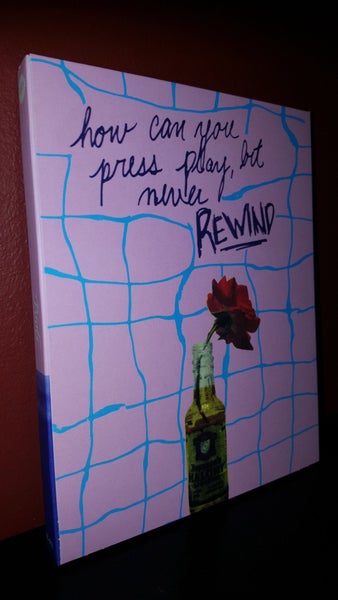 how can you
press play, bt
never
REWIND